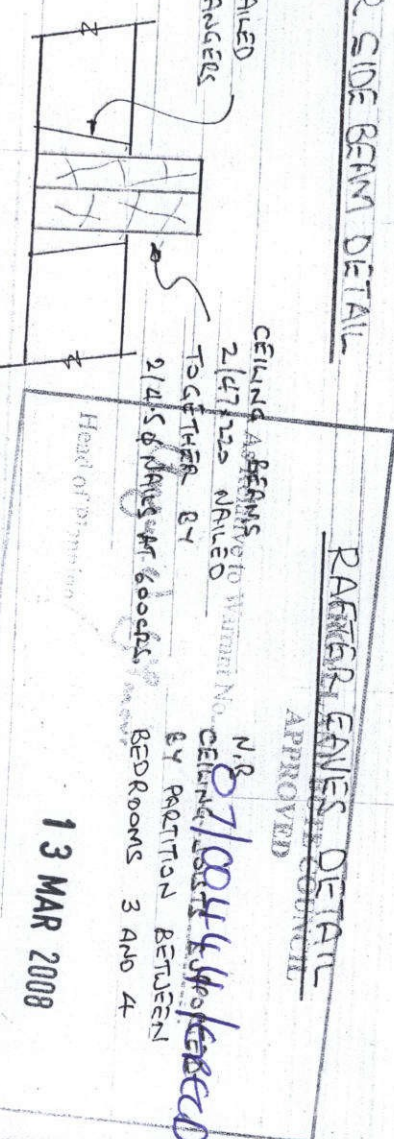 R SIDE BEAM DETAIL
AILED
ANGERS
CEILING BEAMS
2/47x220 NAILED
TOGETHER BY
2/4.5φ NAILS AT 600CRS.
RAFTER EAVES DETAIL
COUNCIL
APPROVED
to Warrant No.
07/00444/
N.B
CEILING JOISTS SUPPORTED
BY PARTITION BETWEEN
BEDROOMS 3 AND 4
Head of
13 MAR 2008